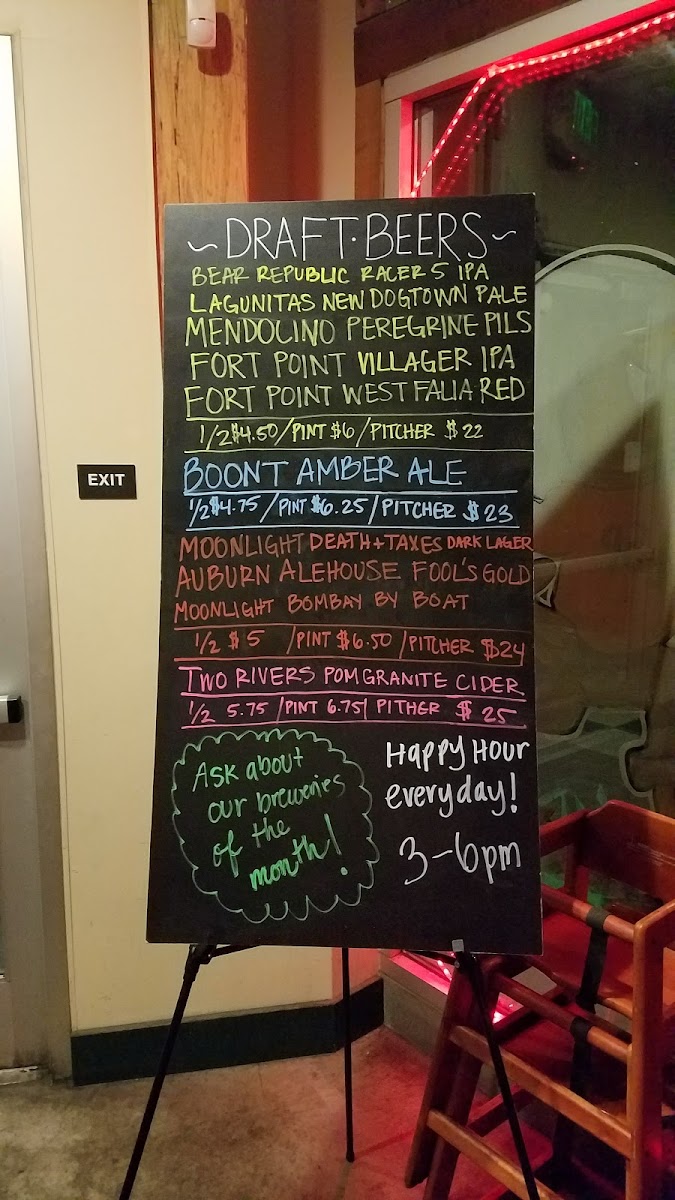 ~DRAFT·BEERS~
BEAR REPUBLIC RACER 5 IPA
LAGUNITAS NEW DOGTOWN PALE
MENDOCINO PEREGRINE PILS
FORT POINT VILLAGER IPA
FORT POINT WESTFALIA RED
1/2 $4.50/PINT $6/PITCHER $22
BOONT AMBER ALE
1/2 $4.75/PINT $6.25/PITCHER $23
MOONLIGHT DEATH+TAXES DARK LAGER
AUBURN ALEHOUSE FOOL'S GOLD
MOONLIGHT BOMBAY BY BOAT
1/2 $5 /PINT $6.50/PITCHER $24
TWO RIVERS POMGRANITE CIDER
1/2 5.75 /PINT 6.75/ PITHER $25
Ask about
our breweries
of the
month!
Happy Hour
everyday!
3-6pm
EXIT